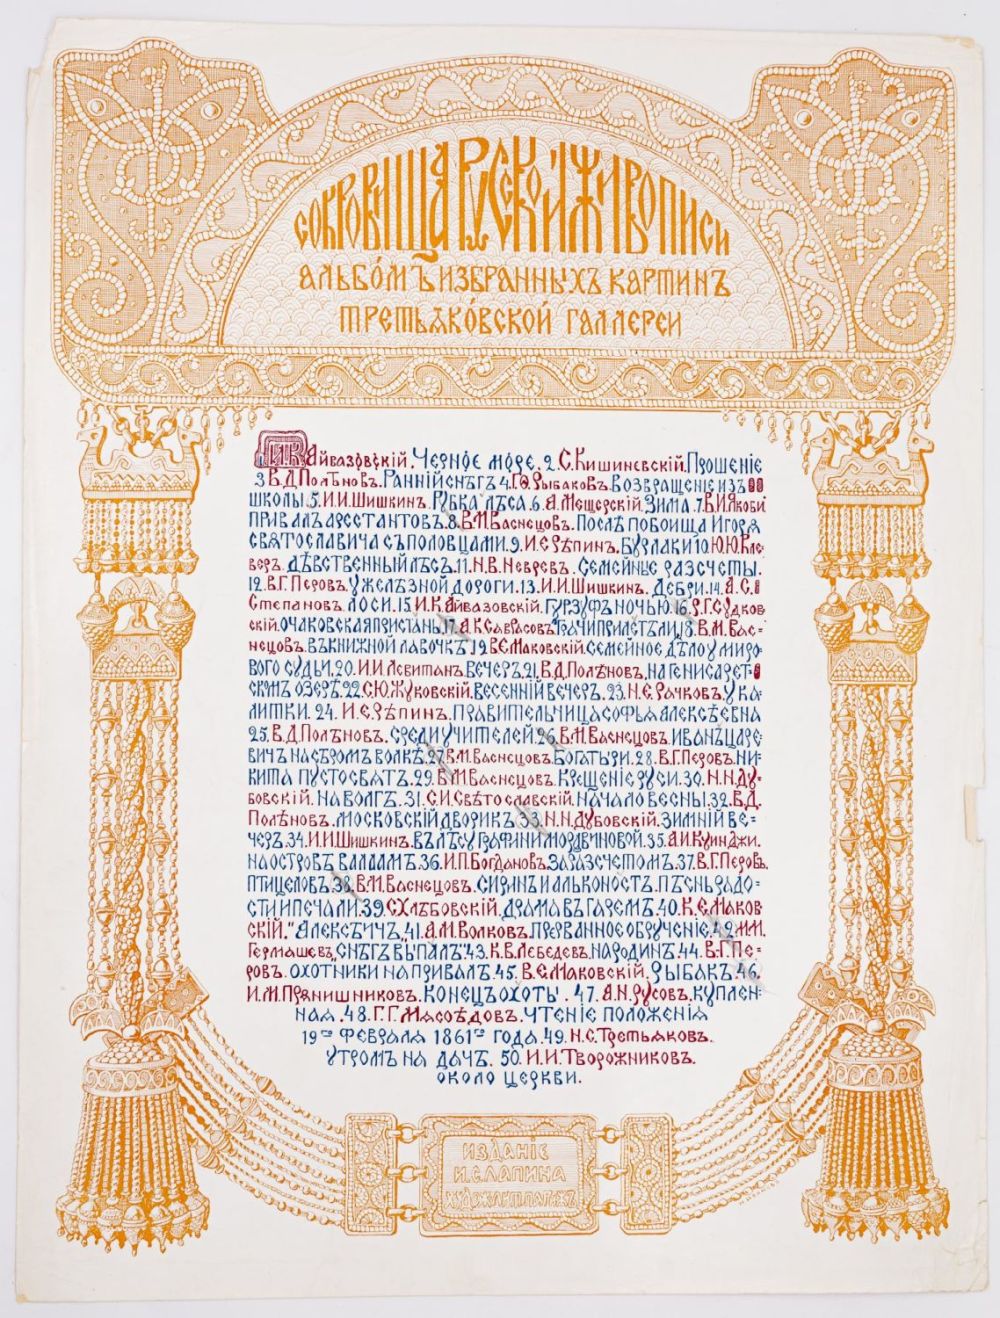 СОКРОВИЩА РУССКОЙ ЖИВОПИСИ
АЛЬБОМЪ ИЗБРАННЫХЪ КАРТИНЪ
ТРЕТЬЯКОВСКОЙ ГАЛЛЕРЕИ
1. И.К. Айвазовскій. Черное море. 2. С. Кишиневскій. Прошеніе
3. В.Д. Полѣновъ. Ранній снѣгъ 4. Г.Ѳ. Рыбаковъ. Возвращеніе изъ
школы. 5. И.И. Шишкинъ. Рубка лѣса. 6. А. Мещерскій. Зима. 7. В.И. Якоби
Привалъ арестантовъ. 8. В.М. Васнецовъ. Послѣ побоища Игоря
Святославича съ половцами. 9. И.Е. Рѣпинъ. Бурлаки 10. Ю.Ю. Кле-
веръ. Дѣвственный лѣсъ. 11. Н.В. Невревъ. Семейные разсчеты.
12. В.Г. Перовъ. У желѣзной дороги. 13. И.И. Шишкинъ. Дебри. 14. А.С.
Степановъ. Лоси. 15. И.К. Айвазовскій. Гурзуфъ ночью. 16. Р.Г. Судков-
скій. Очаковская пристань. 17. А.К. Саврасовъ. Грачи прилетѣли. 18. В.М. Вас=
нецовъ. Въ книжной лавочкѣ 19. В.Е. Маковскій. Семейное дѣло у миро-
вого судьи. 20. И.И. Левитанъ. Вечеръ. 21. В.Д. Полѣновъ. На Генисарет-
скомъ озерѣ. 22. С.Ю. Жуковскій. Весенній вечеръ. 23. Н.Е. Рачковъ. У ка-
литки. 24. И.Е. Рѣпинъ. Правительница Софья Алексѣевна
25. В.Д. Полѣновъ. Среди учителей. 26. В.М. Васнецовъ. Иванъ царе-
вичъ на сѣромъ волкѣ. 27. В.М. Васнецовъ. Богатыри. 28. В.Г. Перовъ. Ни-
кита Пустосвятъ. 29. В.М. Васнецовъ. Крещеніе Руси. 30. Н.Н. Ду-
бовскій. На Волгѣ. 31. С.И. Свѣтославскій. Начало весны. 32. В.Д.
Полѣновъ. Московскій дворикъ. 33. Н.Н. Дубовскій. Зимній ве-
черъ. 34. И.И. Шишкинъ. Въ лѣсу графини Мордвиновой. 35. А.И. Куинджи.
На островѣ Валаамѣ. 36. И.П. Богдановъ. За разсчетомъ. 37. В.Г. Перовъ.
Птицеловъ. 38. В.М. Васнецовъ. Сиринъ и Алконостъ. Пѣснь радо=
сти и печали. 39. С. Хлѣбовскій. Драма въ гаремѣ. 40. К.Е. Маков
скій. "Алексѣичъ". 41. А.М. Волковъ. Прерванное обрученіе. 42. М.М.
Гермашевъ. Снѣгъ выпалъ. 43. К.В. Лебедевъ. На родинѣ. 44. В.Г. Пе-
ровъ. Охотники на привалѣ. 45. В.Е. Маковскій. Рыбакъ. 46.
И.М. Прянишниковъ. Конецъ охоты. 47. А.Н. Русовъ. Куплен-
ная. 48. Г.Г. Мясоѣдовъ. Чтеніе положенія
19го февраля 1861го года. 49. Н.С. Третьяковъ.
Утромъ на дачѣ. 50. И.И. Творожниковъ.
Около церкви.
ИЗДАНІЕ
И.С. ЛАПИНА